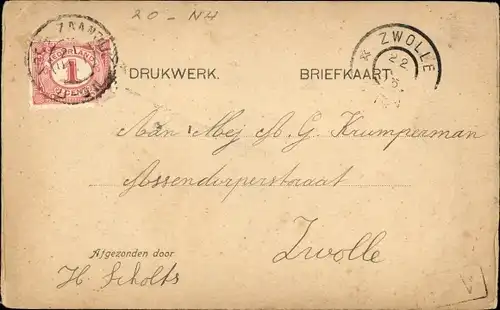 20 - NH
ZAAND
NEDERLAND
1
CENT
ZWOLLE
22
DRUKWERK. BRIEFKAART
Aan Mej A. G. Krumperman
Assendorperstraat
Zwolle
Afgezonden door
H. Scholts